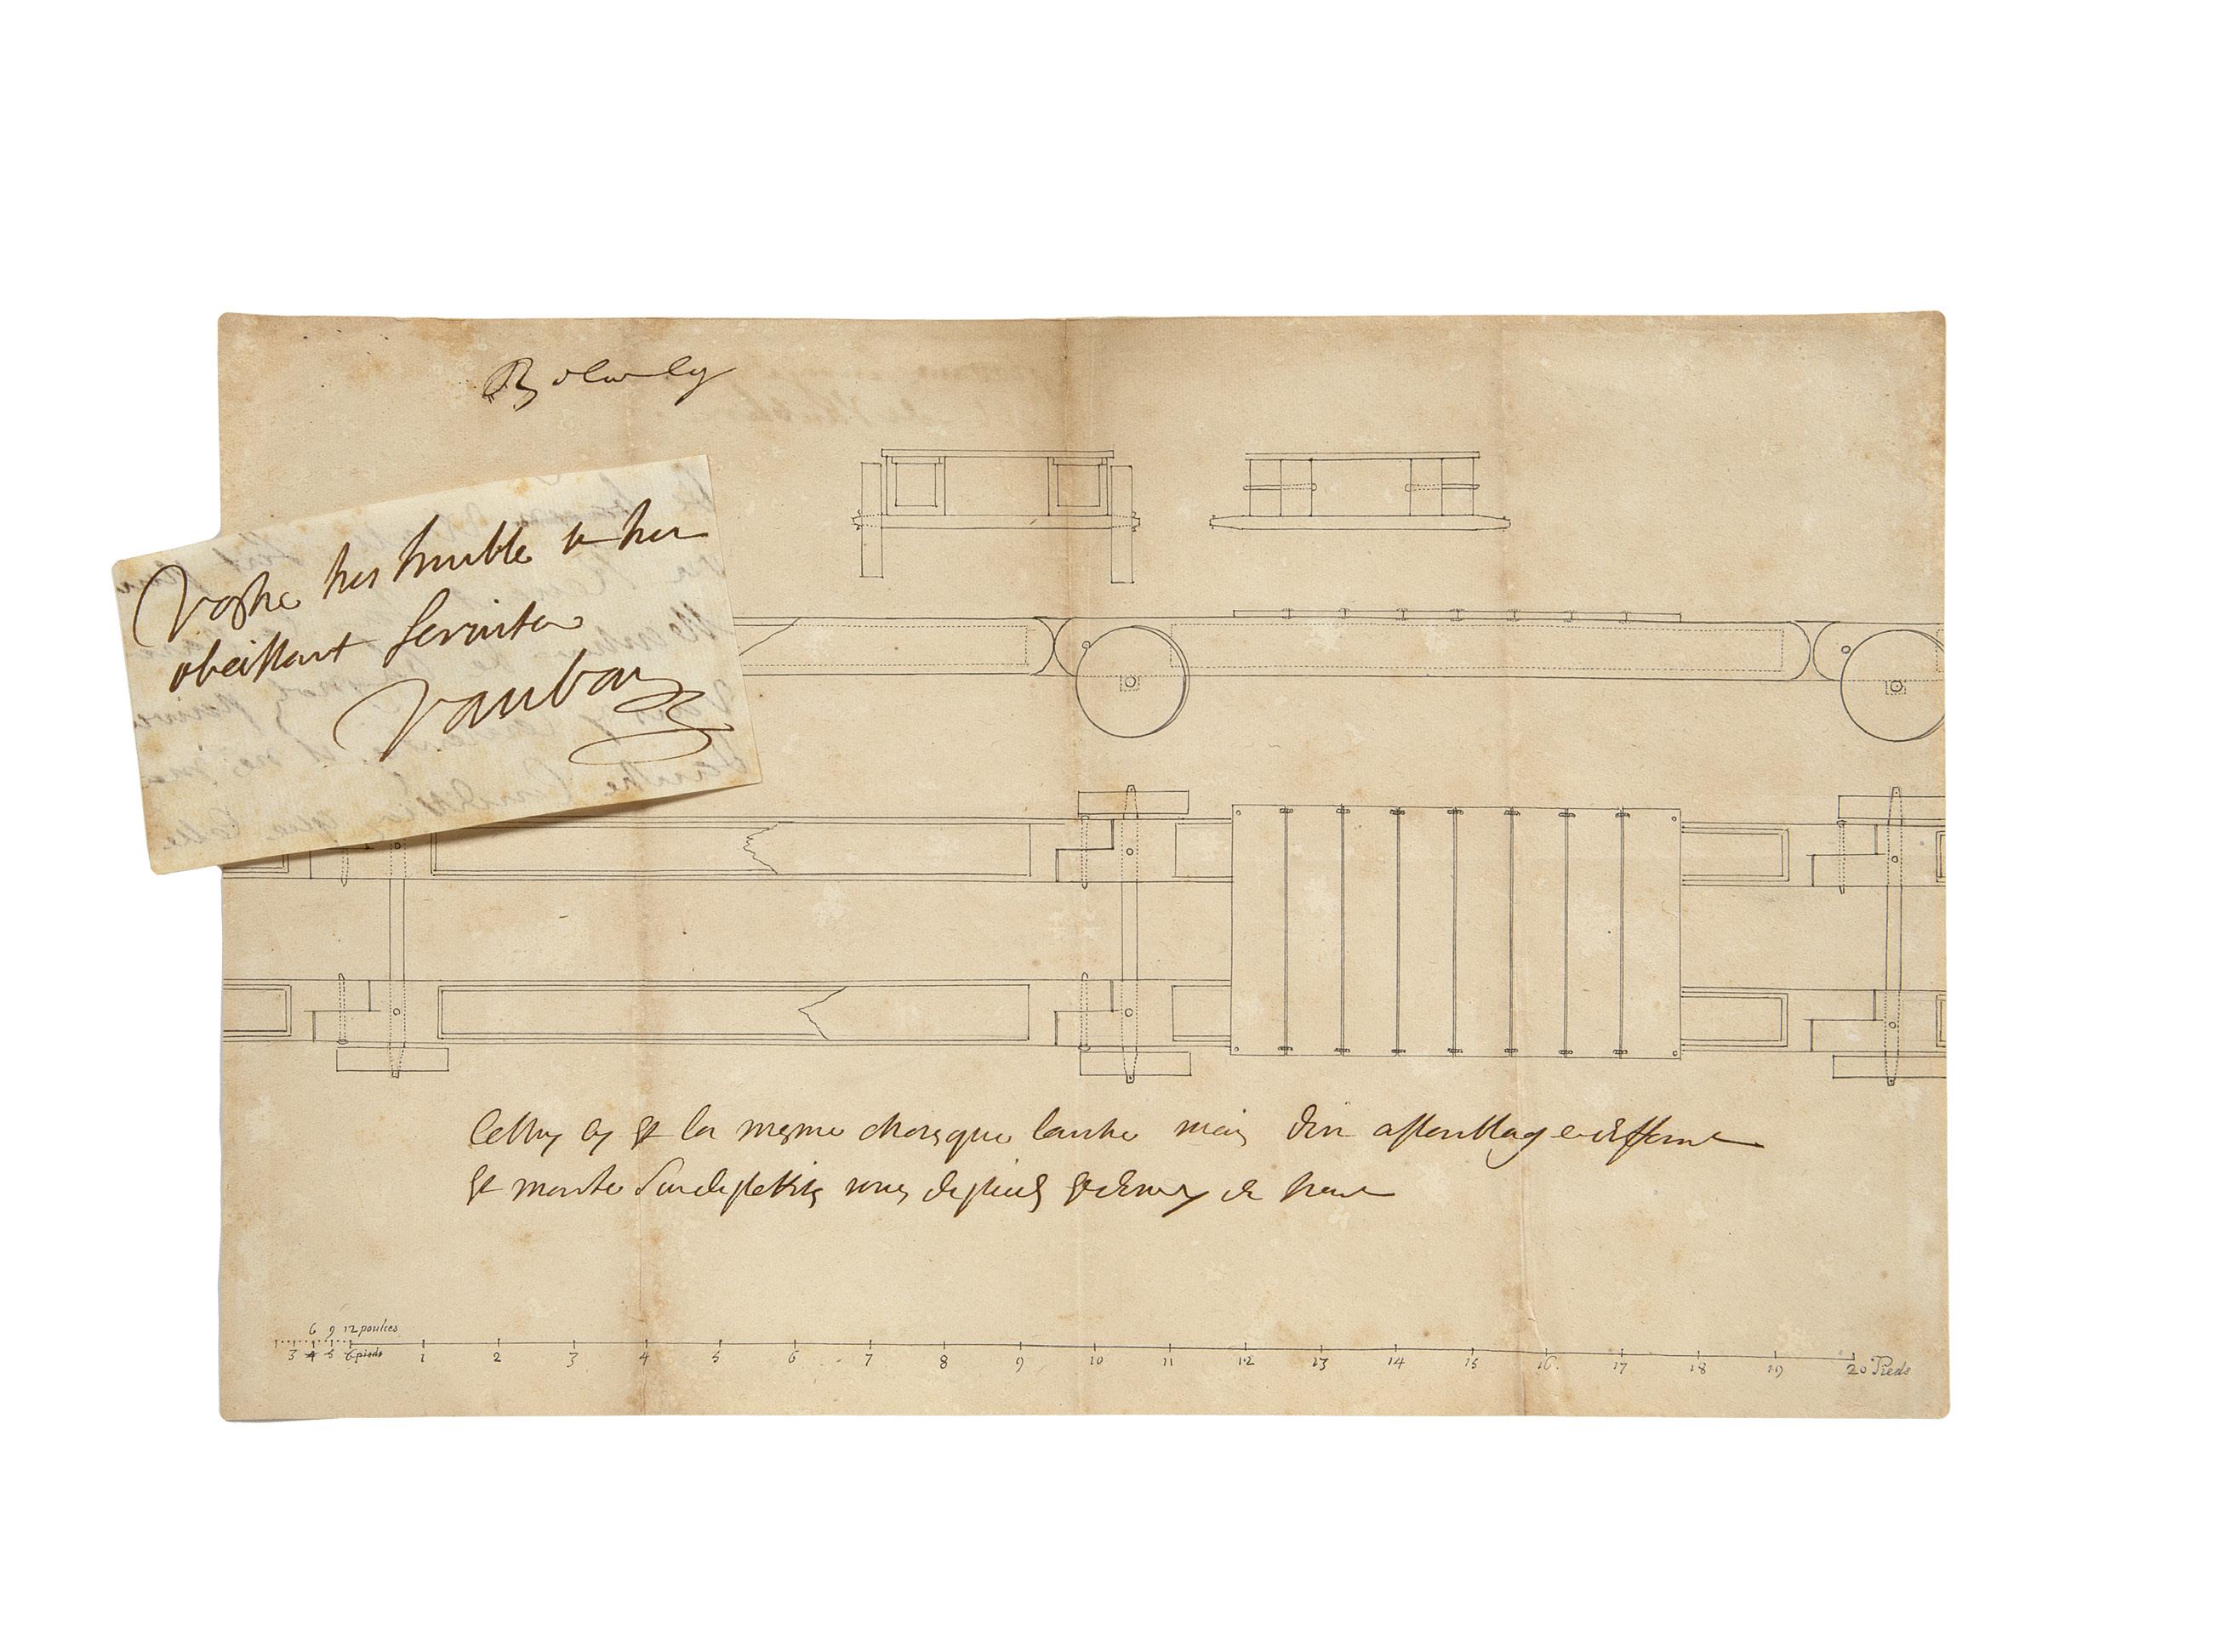 Vostre tres humble et tres
obeissant serviteur
Vauban
Celluy cy est la mesme chose que lautre mais dun assemblage differant
Et monté sur de pettites roues de pied et demy de haut
6 9 12 poulces
3 4 5 6 pieds 1 2 3 4 5 6 7 8 9 10 11 12 13 14 15 16. 17 18 19 20 Pieds